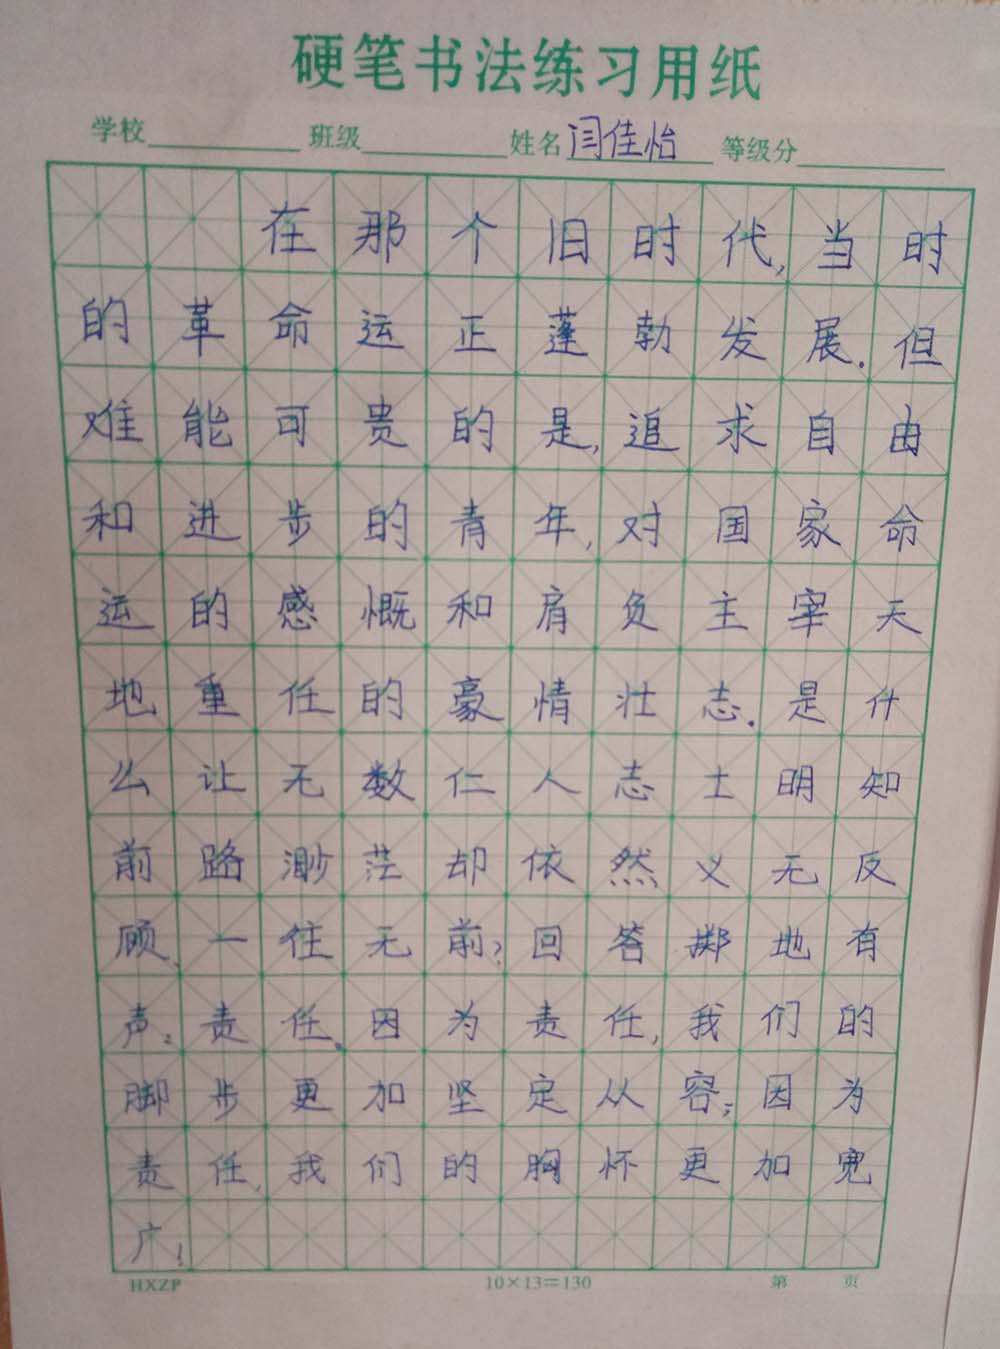 硬笔书法练习用纸
学校 班级 姓名 闫佳怡 等级分
在那个旧时代,当时
的革命运正蓬勃发展.但
难能可贵的是,追求自由
和进步的青年,对国家命
运的感慨和肩负主宰天
地重任的豪情壮志.是什
么让无数仁人志士明知
前路渺茫却依然义无反
顾、一往无前?回答掷地有
声:责任.因为责任,我们的
脚步更加坚定从容;因为
责任,我们的胸怀更加宽
广!
HXZP 10×13=130 第 页